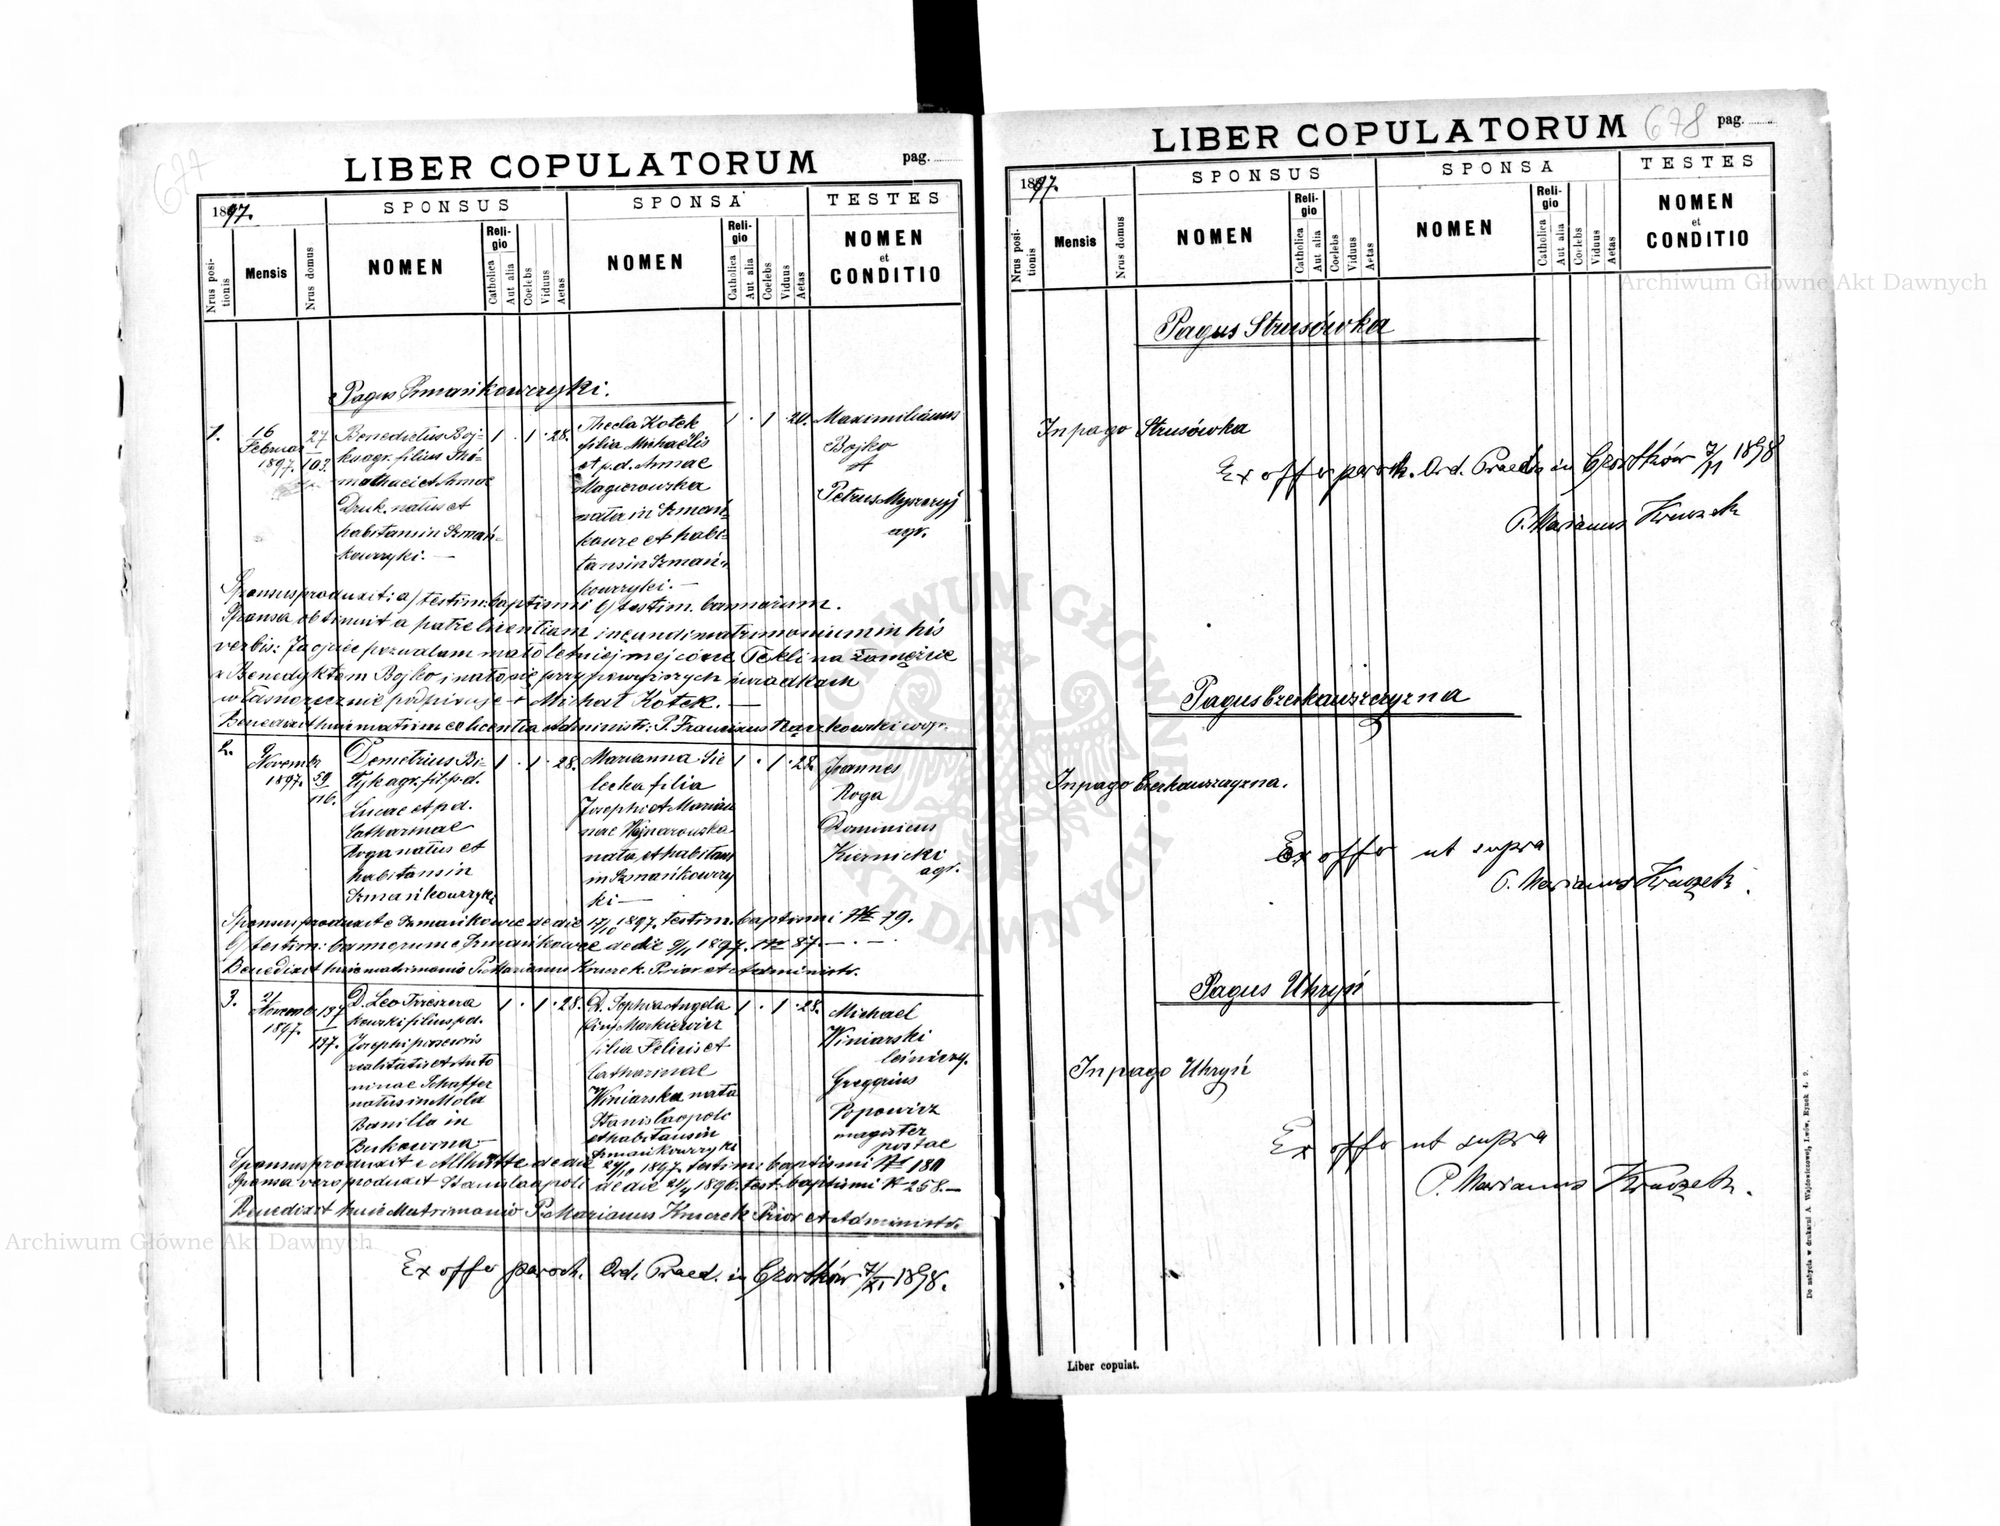 677
LIBER COPULATORUM
pag.
1897.
SPONSUS
SPONSA
TESTES
Nrus positionis
Mensis
Nrus domus
NOMEN
Religio
Catholica
Aut alia
Coelebs
Viduus
Aetas
NOMEN
Religio
Catholica
Aut alia
Coelebs
Viduus
Aetas
NOMEN
et
CONDITIO
Pagus Szmańkowczyki.
1.
16
Februar
1897.
27
103.
Benedictus Boj-
ko agr. filius Tho-
mathaei et Annae
Druk. natus et
habitans in Szmań-
kowczyki. —
1 . 1 . 28.
Thecla Kotek
filia Michaëlis
et p.d. Annae
Magierowska
nata in Szmań-
kowce et habi-
tans in Szmań-
kowczyki. —
1 . 1 . 20.
Maximilianus
Bojko
et
Petrus Myszczyj
agr.
Sponsus produxit: a) testim. baptismi b) testim. bannorum.
Sponsa obtinuit a patre licentiam ineundi matrimonium in his
verbis: Ja ojciec pozwalam małoletniej mej córce Tekli na zamęście
z Benedyktem Bojko i na to się przy powyższych świadkach
własnoręcznie podpisuje + Michał Kotek. —
Benedixit huic matrim. e licentia Administr: P. Franciscus Rączkowski coop.
2.
9
Novembr
1897.
59
116.
Demetrius Bi-
łyk agr. fil. p.d.
Lucae et p.d.
Catharinae
Roga natus et
habitans in
Szmańkowczyki
1 . 1 . 28.
Marianna Sie
lecka filia
Josephi et Marian
nae Wojnarowska
nata et habitans
in Szmańkowczy
ki —
1 . 1 . 28.
Joannes
Roga
Dominicus
Kiernicki
agr.
Sponsus produxit e Szmańkowce de die 17/10 1897. testim. baptismi № 79.
b) testim: bannorum e Szmańkowce de die 9/11 1897. № 87. — . —
Benedixit huic matrimonio P. Marianus Kruczek Prior et Administr.
3.
21
Novembr
1897.
137
137.
D. Leo Trzeszcza
kowski filius p.d.
Josephi possessoris
realitatis et Anto
ninae Schaffer
natus in Mold
Banilla in
Bukowina —
1 . 1 . 28.
D. Sophia Angela
Markiewicz
filia Felicis et
Catharinae
Winiarska nata
Stanislaopole
et habitans in
Szmańkowczyki
1 . 1 . 28.
Michael
Winiarski
leśniczy.
Gregorius
Popowicz
magister
postae
Sponsus produxit e Althütte de die 24/10 1897. testim: baptismi № 180
Sponsa vero produxit Stanislaopoli de die 21/4 1896. test. baptismi № 258. —
Benedixit huic Matrimonio P. Marianus Kruczek Prior et Administr.
Ex offo paroch. Ord. Praed. in Czortków 7/XI 1898.
LIBER COPULATORUM
678
pag.
1897.
SPONSUS
SPONSA
TESTES
Nrus positionis
Mensis
Nrus domus
NOMEN
Religio
Catholica
Aut alia
Coelebs
Viduus
Aetas
NOMEN
Religio
Catholica
Aut alia
Coelebs
Viduus
Aetas
NOMEN
et
CONDITIO
Pagus Strusówka
In pago Strusówka
Ex offo paroch. Ord. Praed. in Czortków 7/11 1898
P. Marianus Kruczek
Pagus Czerkawszczyzna
In pago Czerkawszczyzna.
Ex offo ut supra
P. Marianus Kruczek.
Pagus Uhryń
In pago Uhryń
Ex offo ut supra
P. Marianus Kruczek.
Liber copulat.
Do nabycia w drukarni A. Wajdowiczowej, Lwów, Rynek l. 9.
Archiwum Główne Akt Dawnych
Archiwum Główne Akt Dawnych
ARCHIWUM GŁÓWNE AKT DAWNYCH